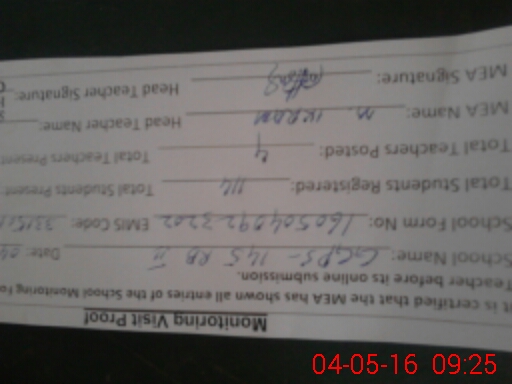 Monitoring Visit Proof
It is certified that the MEA has shown all entries of the School Monitoring Fo
Teacher before its online submission.
School Name: GGPS - 145 RB II Date: 04
School Form No: EMIS Code:
Total Students Registered: 114 Total Students Present
Total Teachers Posted: 4 Total Teachers Present
MEA Name: M. IKRAM Head Teacher Name:
MEA Signature: Head Teacher Signature:
04-05-16 09:25